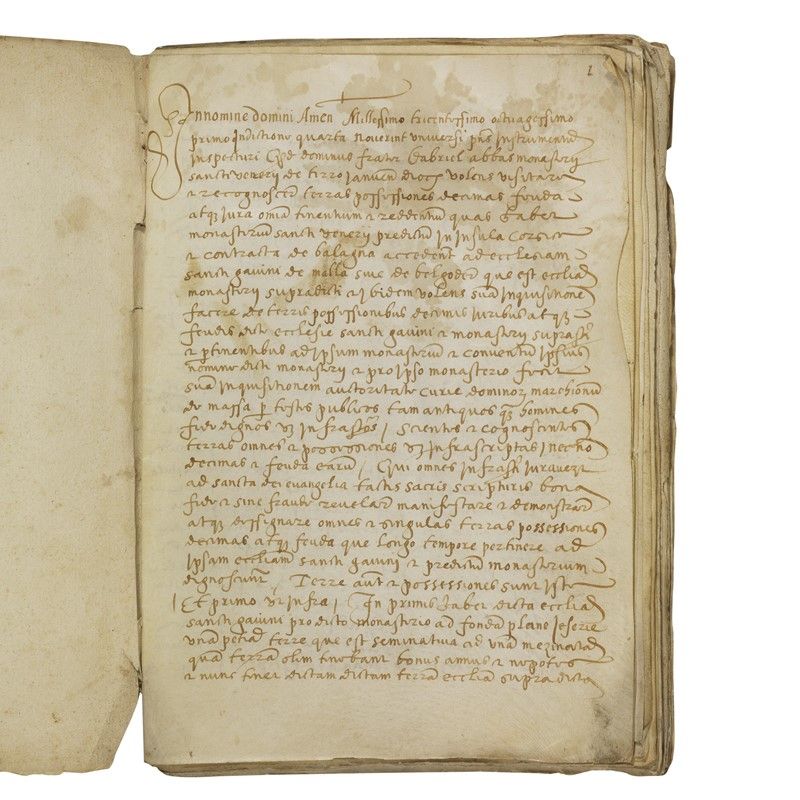 1
In nomine domini Amen Millessimo tricentessimo octuagessimo
primo Indictione quarta Noverint universi pns Instrumentū
Inspecturi Qd dominus frater Gabriel abbas monastery
sancti venery de tirro Januen dioc volens visitare
et recognoscere terras possessiones decimas feuda
atq3 jura omia tinentium et reddentiū quas habet
monastriū sancti venery predictū in insula Corsice
et contracta de balagna accedent ad ecclesiam
sancti gavini de malla sive de belgoder que est ecclia
monastery supradicti et ibidem volens suā Inquisitione
facere de terris possessionibus decimis juribus atq3
feudis dicte ecclesie sancti gavini et monastery suprasti
et ptinentibus ad ipsum monastriū et conventū ipsius
nomine dicti monastery et pro ipso monasterio fecit
suā Inquisitionem autoritate Curie dominor marchionū
de massa p testes publicos tam antiquos q homines
fide dignos ut infrastos / scientes et cognoscentes
terras omnes et possessiones ut infrascriptas
decimas et feuda earū / Qui omnes infrasti iuraverūt
ad sancta dei evangelia tactis sacris scripturis bona
fide et sine fraude revelare manifestare et demonstrare
atq3 dessignare omnes et singulas terras possessiones
decimas atq3 feuda que longo tempore pertinere ad
ipsam eccliam sancti gavini et predictū monasterium
dignoscunt / Terre aut et possessiones sunt iste
Et primo ut infra / In primis habet dicta ecclia
sancti gavini pro dicto monastrio ad fondū plano
unā petiā terre que est seminatiua ad unā mezinatā
quā terrā olim tinebant bonus annus et nepotes
et nunc tinet dictam dictam terrā ecclia supradicta